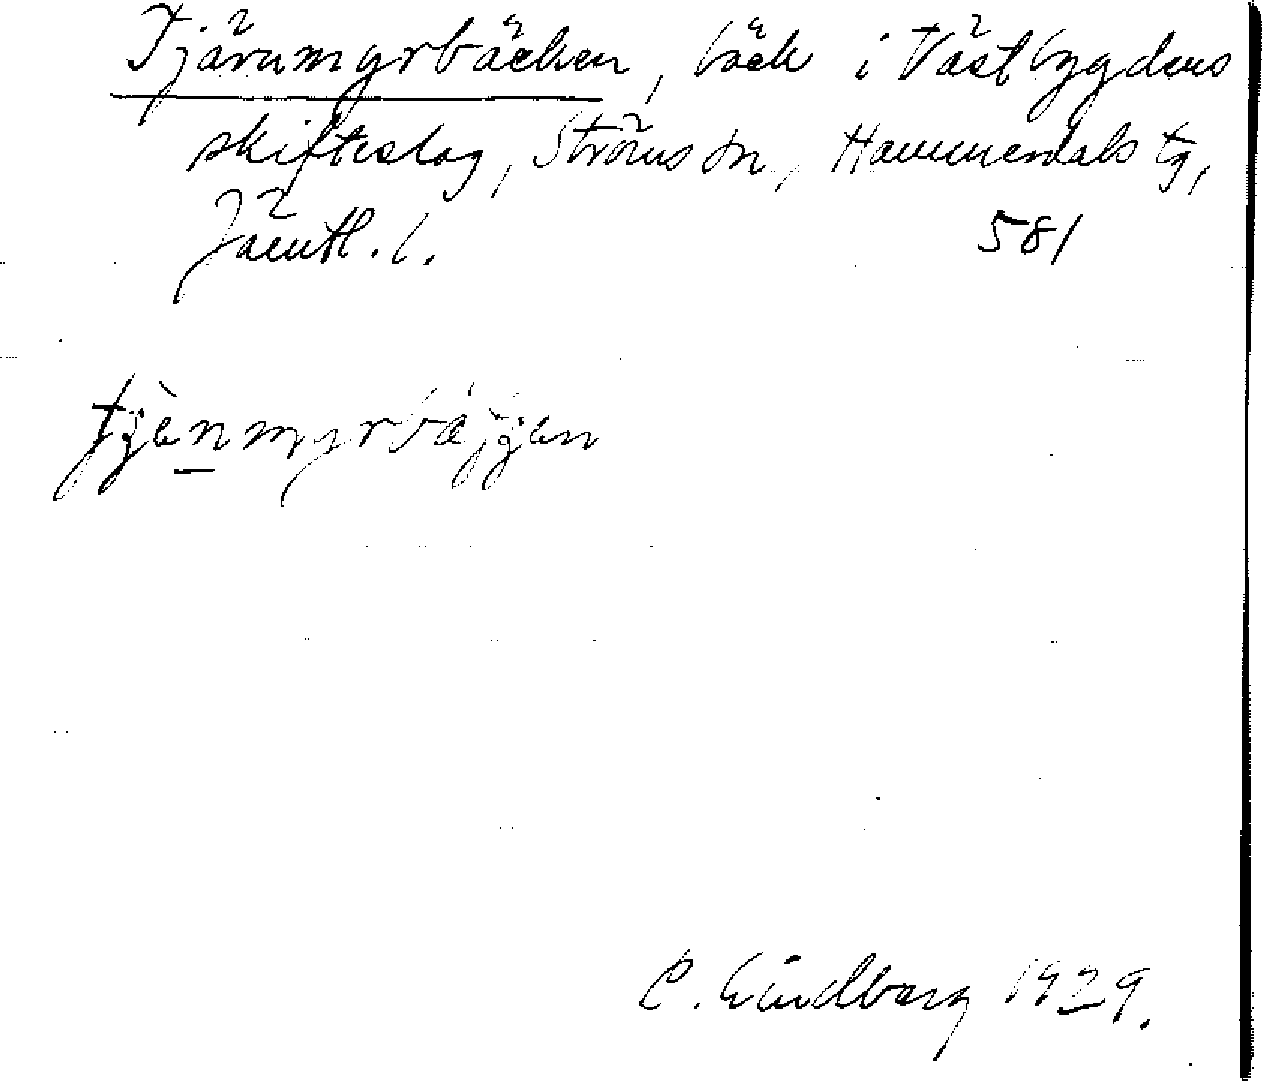 Tjärnmyrbäcken, bäck i Västbygdens
skifteslag, Ströms sn, Hammerdals tg,
Jämtl. l. 581
C. Lindberg 1929.